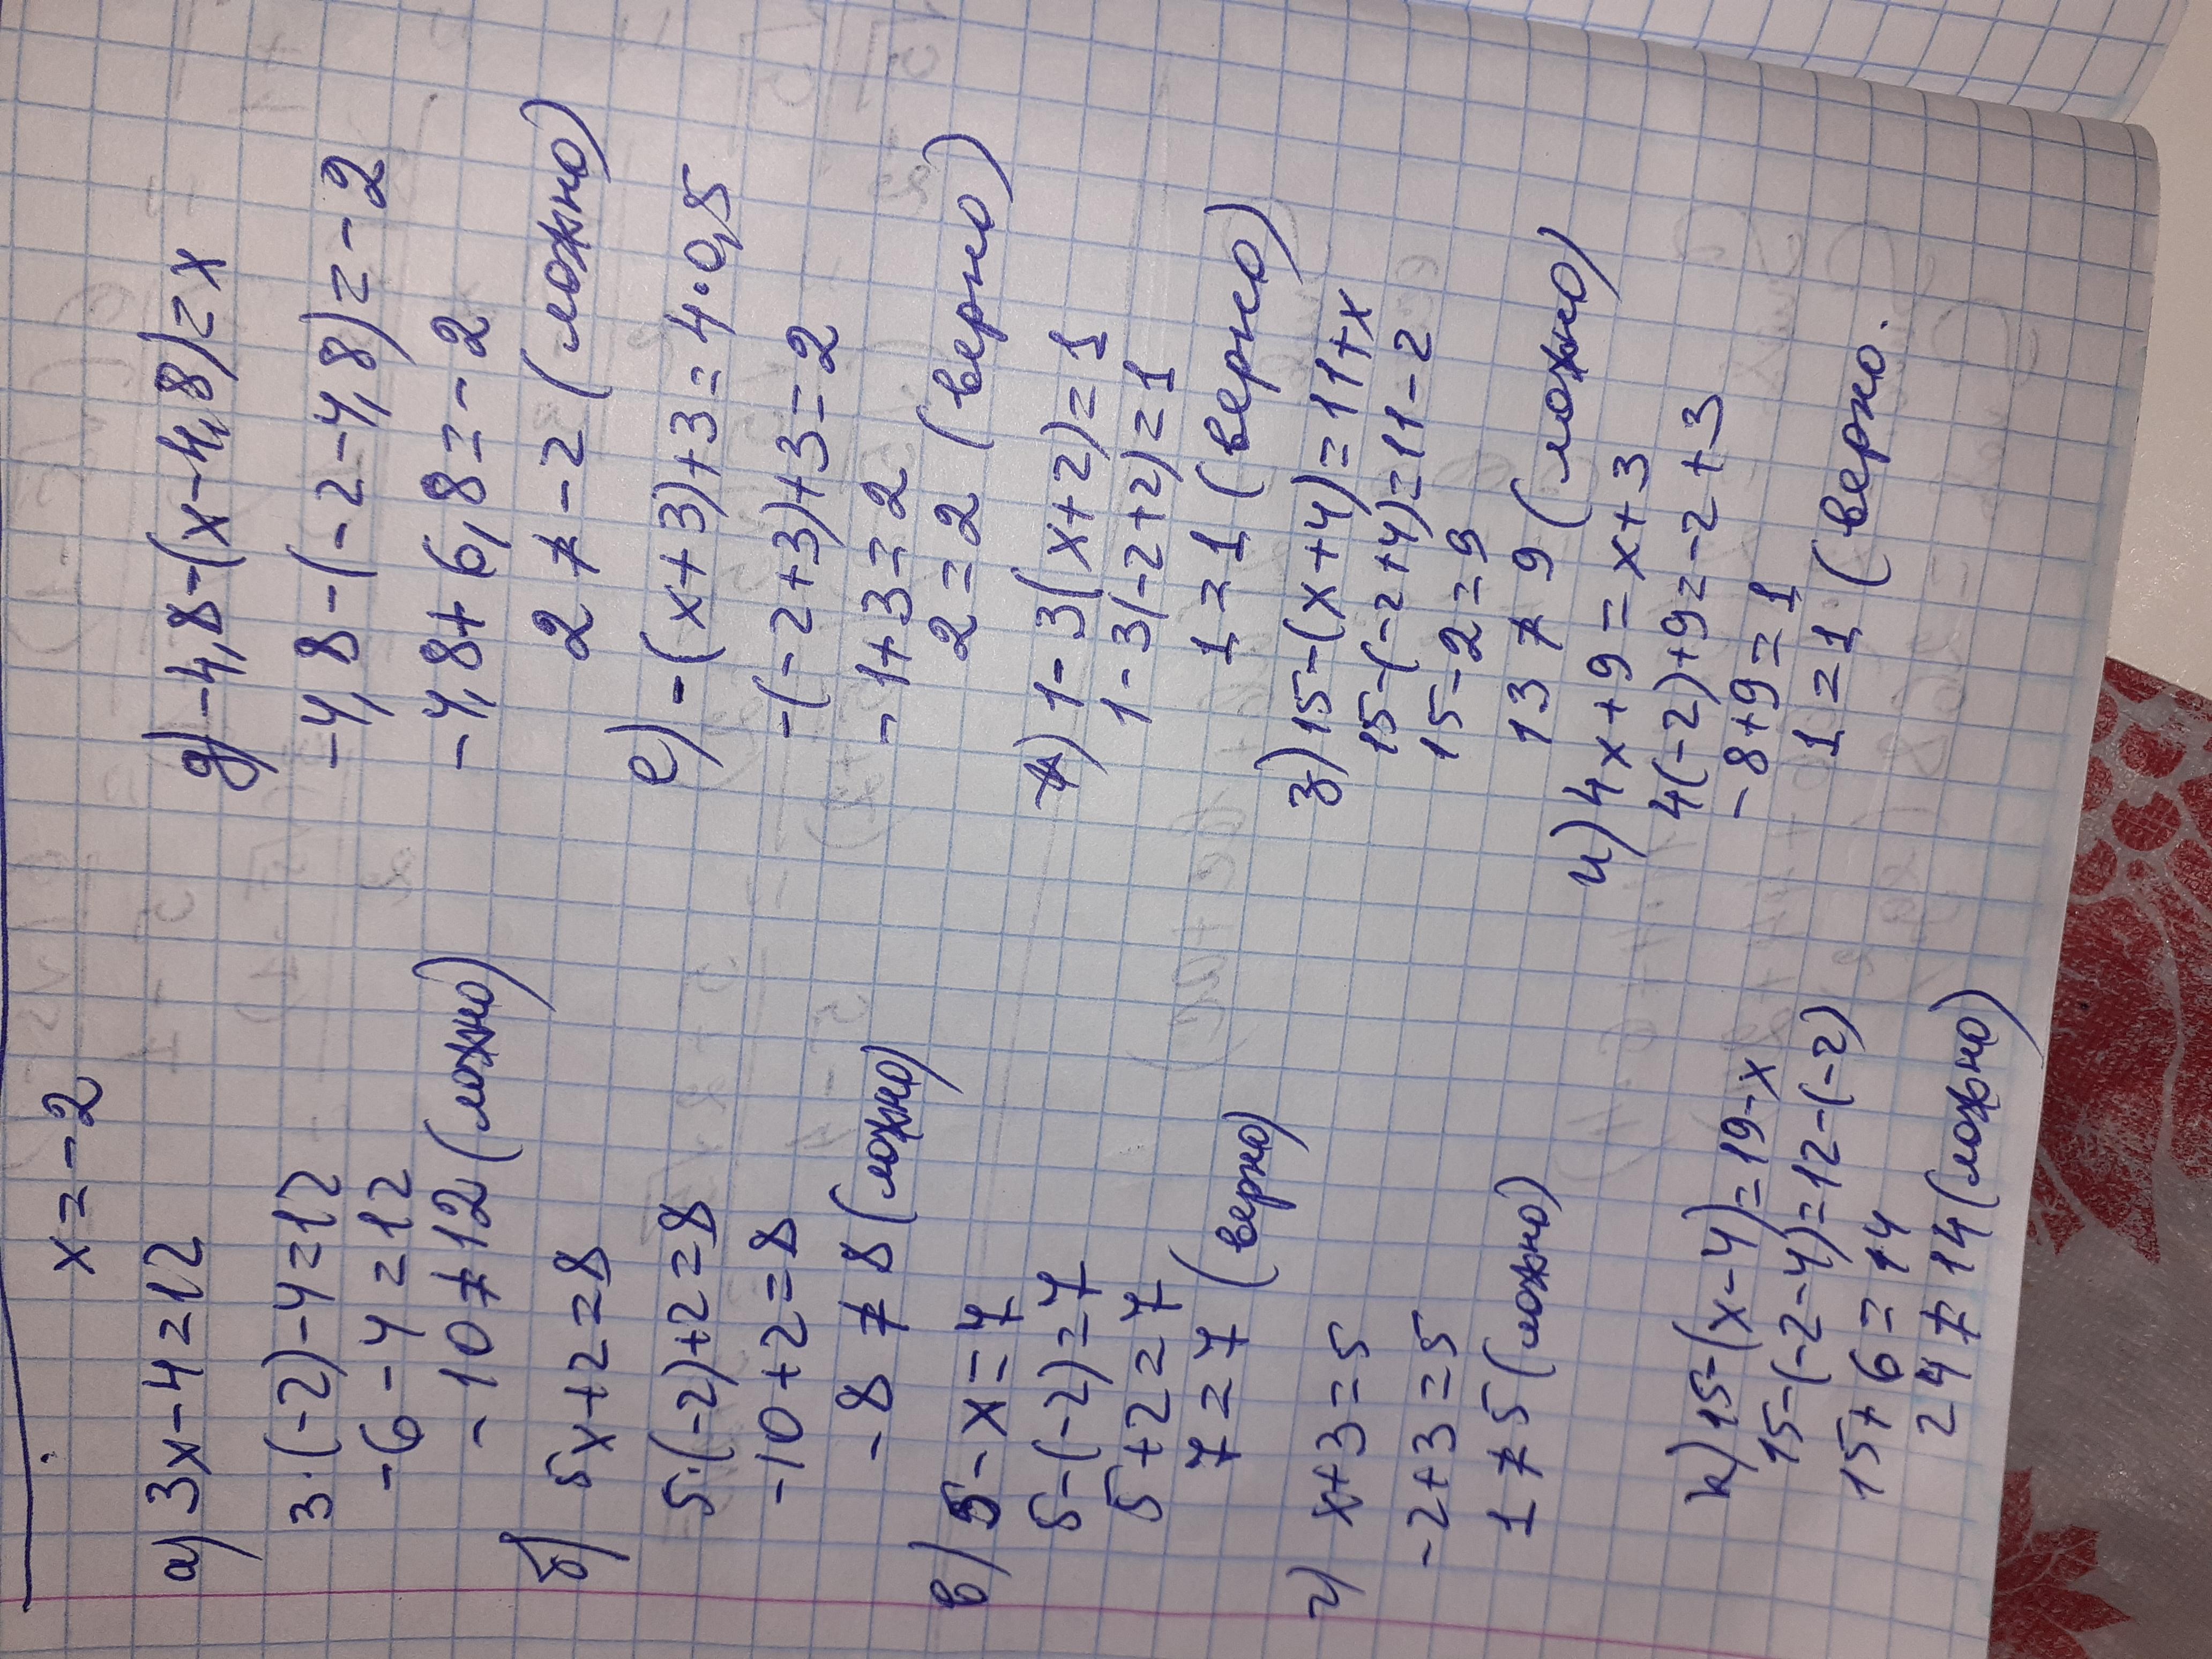 x = -2
а) 3x-4=12
3·(-2)-4=12
-6-4=12
-10≠12 (ложно)
б) 5x+2=8
5·(-2)+2=8
-10+2=8
-8 ≠ 8 (ложно)
в) 5-x=7
5-(-2)=7
5+2=7
7=7 (верно)
г) x+3=5
-2+3=5
1≠5 (ложно)
к) 15-(x-4)=19-x
15-(-2-4)=12-(-2)
15+6=14
24≠14 (ложно)
д) -4,8-(x-4,8)=x
-4,8-(-2-4,8)=-2
-4,8+6,8=-2
2≠-2 (ложно)
е) -(x+3)+3=4·0,5
-(-2+3)+3=2
-1+3=2
2=2 (верно)
ж) 1-3(x+2)=1
1-3(-2+2)=1
1=1 (верно)
з) 15-(x+4)=11+x
15-(-2+4)=11-2
15-2=9
13≠9 (ложно)
и) 4x+9=x+3
4(-2)+9=-2+3
-8+9=1
1=1 (верно.